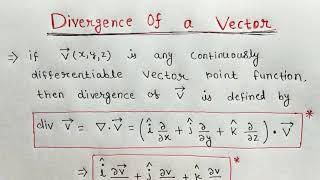 Divergence Of a Vector
⇒ if V⃗(x,y,z) is any continuously
differentiable vector point function,
then divergence of V⃗ is defined by
div V⃗ = ∇·V⃗ = (î ∂/∂x + ĵ ∂/∂y + k̂ ∂/∂z)·V⃗ *
⇒ î ∂V⃗ + ĵ ∂v + k̂ ∂v *